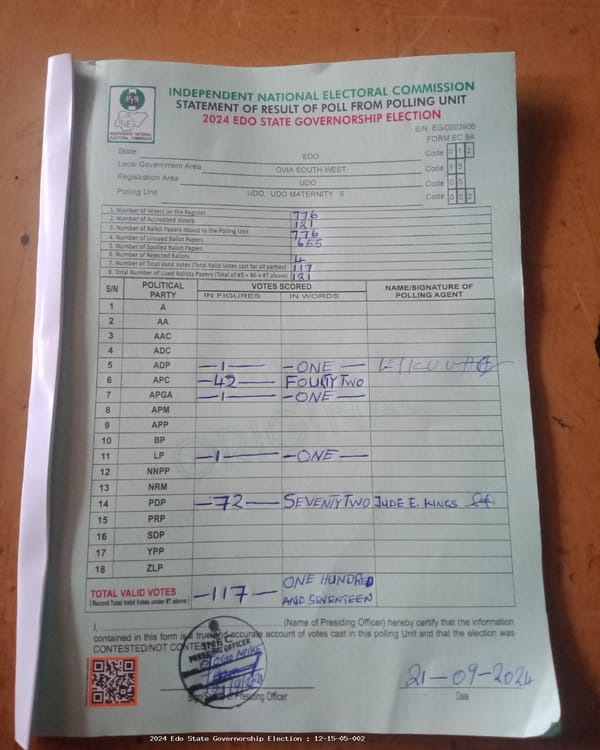 INDEPENDENT NATIONAL ELECTORAL COMMISSION
STATEMENT OF RESULT OF POLL FROM POLLING UNIT
2024 EDO STATE GOVERNORSHIP ELECTION
INEC
INDEPENDENT NATIONAL
ELECTORAL COMMISSION
S/N EG/0003906
FORM EC 8A
State EDO Code 0 1 2
Local Government Area OVIA SOUTH WEST Code 1 5
Registration Area UDO Code 0 5
Polling Unit UDO, UDO MATERNITY II Code 0 0 2
1. Number of Voters on the Register 776
2. Number of Accredited Voters 121
3. Number of Ballot Papers issued to the Polling Unit 776
4. Number of Unused Ballot Papers 655
5. Number of Spoiled Ballot Papers
6. Number of Rejected Ballots 4
7. Number of Total Valid Votes (Total Valid Votes cast for all parties) 117
8. Total Number of Used Ballots Papers (Total of #5 + #6 + #7 above) 121
S/N POLITICAL PARTY VOTES SCORED NAME/SIGNATURE OF POLLING AGENT
IN FIGURES IN WORDS
1 A
2 AA
3 AAC
4 ADC
5 ADP -1- -ONE-
6 APC -42- FOURTY TWO
7 APGA -1- -ONE-
8 APM
9 APP
10 BP
11 LP -1- -ONE-
12 NNPP
13 NRM
14 PDP -72- SEVENTY TWO JUDE E. KINGS
15 PRP
16 SDP
17 YPP
18 ZLP
TOTAL VALID VOTES -117- ONE HUNDRED
(Record Total Valid Votes under #7 above) AND SEVENTEEN
I, (Name of Presiding Officer) hereby certify that the information
contained in this form is a true and accurate account of votes cast in this polling Unit and that the election was
CONTESTED/NOT CONTESTED
PRESIDING OFFICER
21-09-2024
Signature of Presiding Officer Date
2024 Edo State Governorship Election : 12-15-05-002